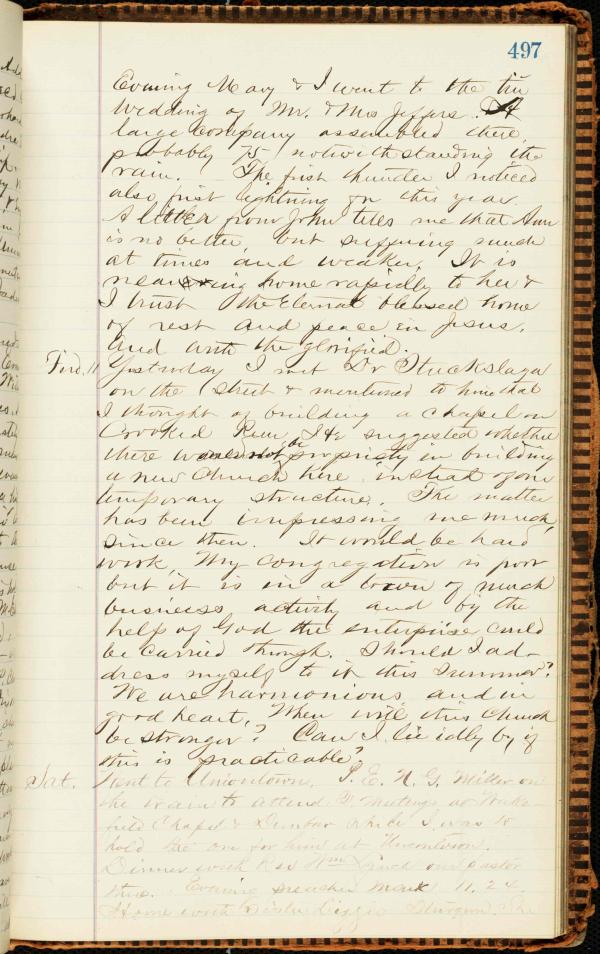 497
Evening Mary & I went to the tin
Wedding of Mr. & Mrs Jeffers. A
large company assembled there,
probably 75 notwithstanding the
rain. The first thunder I noticed
also first lightning on this year.
A letter from John tells me that Ann
is no better, but suffering much
at times and weaker. It is
nearing home rapidly to her &
I trust the Eternal blessed home
of rest and peace in Jesus,
and with the glorified.
Frid. 11 Yesterday I met Dr Stuckslager
on the street & mentioned to him that
I thought of building a chapel on
Crooked Run, & He suggested whether
there would not be propriety in building
a new Church here instead of our
temporary structure. The matter
has been impressing me much,
since then. It would be hard
work, My congregation is poor
but it is in a town of much
business activity and by the
help of God the enterprise could
be carried through. Should I ad-
dress myself to it this Summer?
We are harmonious and in
good heart, When will this Church
be stronger? Can I lie idly by if
this is practicable?
Sat. Went to Uniontown. P. E. N. G. Miller on
the train to attend Q Meetings at Wake-
field Chapel & Dunbar while I was to
hold the one for him at Uniontown.
Dinner with Rev Wm Lynch our pastor
there. Evening preached Mark 11.24.
Home with Sister Lizzie Sturgeon. She